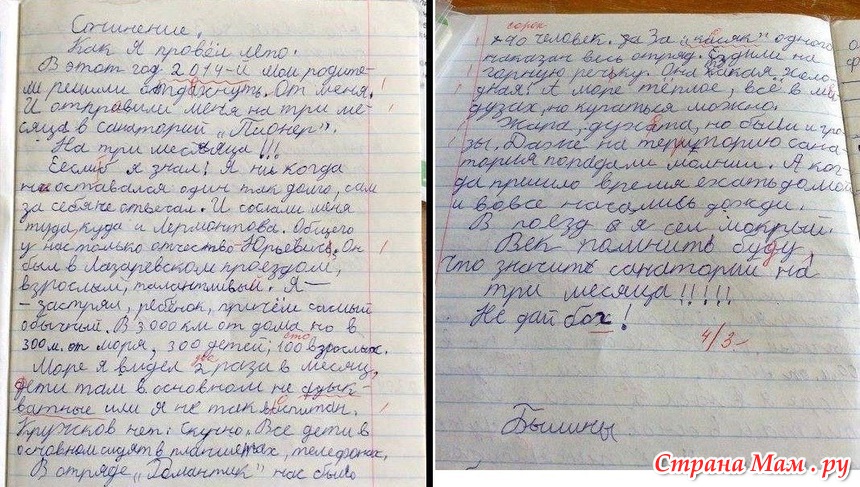 Сочинение.
Как я провёл лето.
В этот год 2014-й мои родите-
ли решили отдохнуть. От меня.
И отправили меня на три ме-
сяца в санаторий „Пионер".
На три месяца!!!
Если б я знал! Я ни когда
не оставался один так долго, сам
за себя не отвечал. И сослали меня
туда, куда и Лермонтова. Общего
у нас только отчество - Юрьевич. Он
был в Лазаревском проездом,
взрослый, талантливый. Я-
- застрял, ребёнок, причём самый
обычный. В 3000 км от дома но в
300 м. от моря, 300 детей, сто 100 взрослых.
Море я видел два 2 раза в месяц,
дети там в основном не адык-
ватные или я не так воспитан.
Кружков нет. Скучно. Все дети в
основном сидят в планшетах, телефонах.
В отряде „Романтик" нас было
сорок
40 человек. За „косяк" одного
наказан весь отряд. Ездили на
горную речьку. Она какая холо-
дная! А море тёплое, всё в ме
дузах, но купаться можно.
Жара, духата, но были и гро-
зы. Даже на территорию сана-
тория попадали молнии. А ког-
да пришло время ехать домой
и вовсе начались дожди.
В поезд я сел мокрый.
Век помнить буду,
что значить санаторий на
три месяца!!!!!
Не дай бог!
4/3-
Былины
Страна Мам.ру